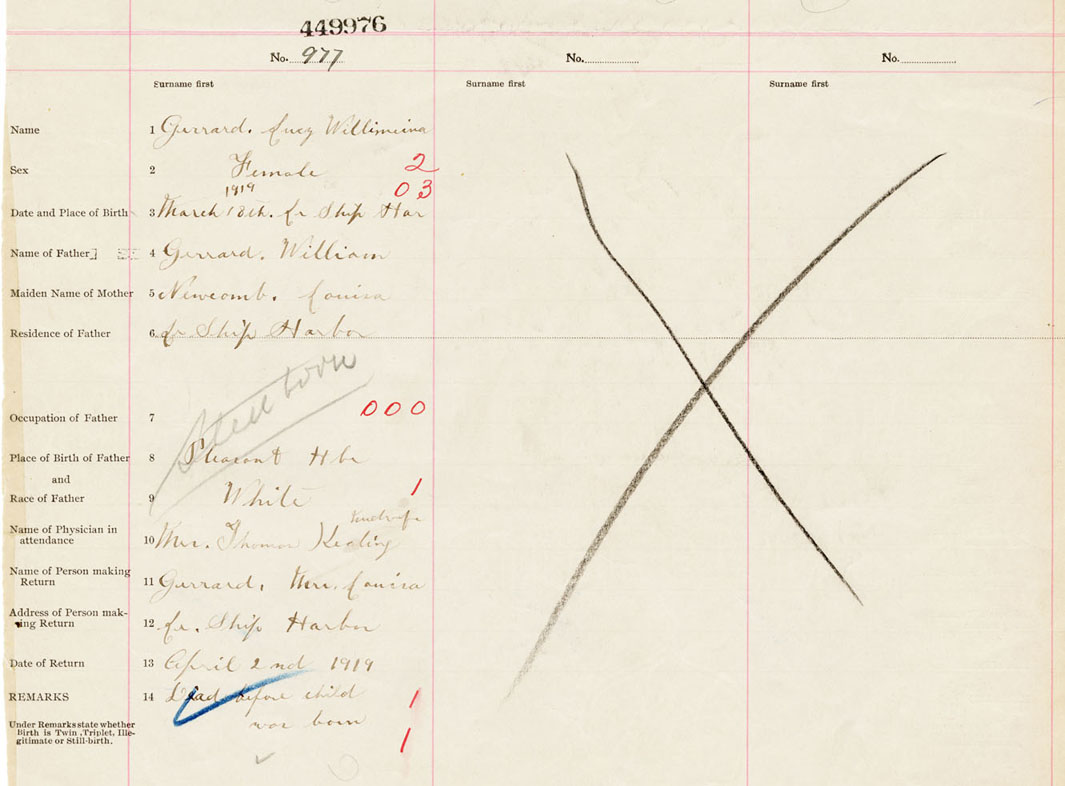 449976
No. 977 No. No.
Surname first Surname first Surname first
Name 1 Gerrard. Lucy Willimeina
Sex 2 Female 2
1919 03
Date and Place of Birth 3 March 18th. Lr Ship Har
Name of Father 4 Gerrard. William
Maiden Name of Mother 5 Newcomb. Louisa
Residence of Father 6 Lr Ship Harbor
Still born
Occupation of Father 7 000
Place of Birth of Father 8 Pleasant Hbr
and
Race of Father 9 White 1
Name of Physician in
attendance 10 Mrs. Thomas Keating
Name of Person making
Return 11 Gerrard, Mrs. Louisa
Address of Person mak-
ing Return 12 Lr. Ship Harbor
Date of Return 13 April 2nd 1919
REMARKS 14 Dead before child 1
was born
Under Remarks state whether
Birth is Twin, Triplet, Ille-
gitimate or Still-birth. 1